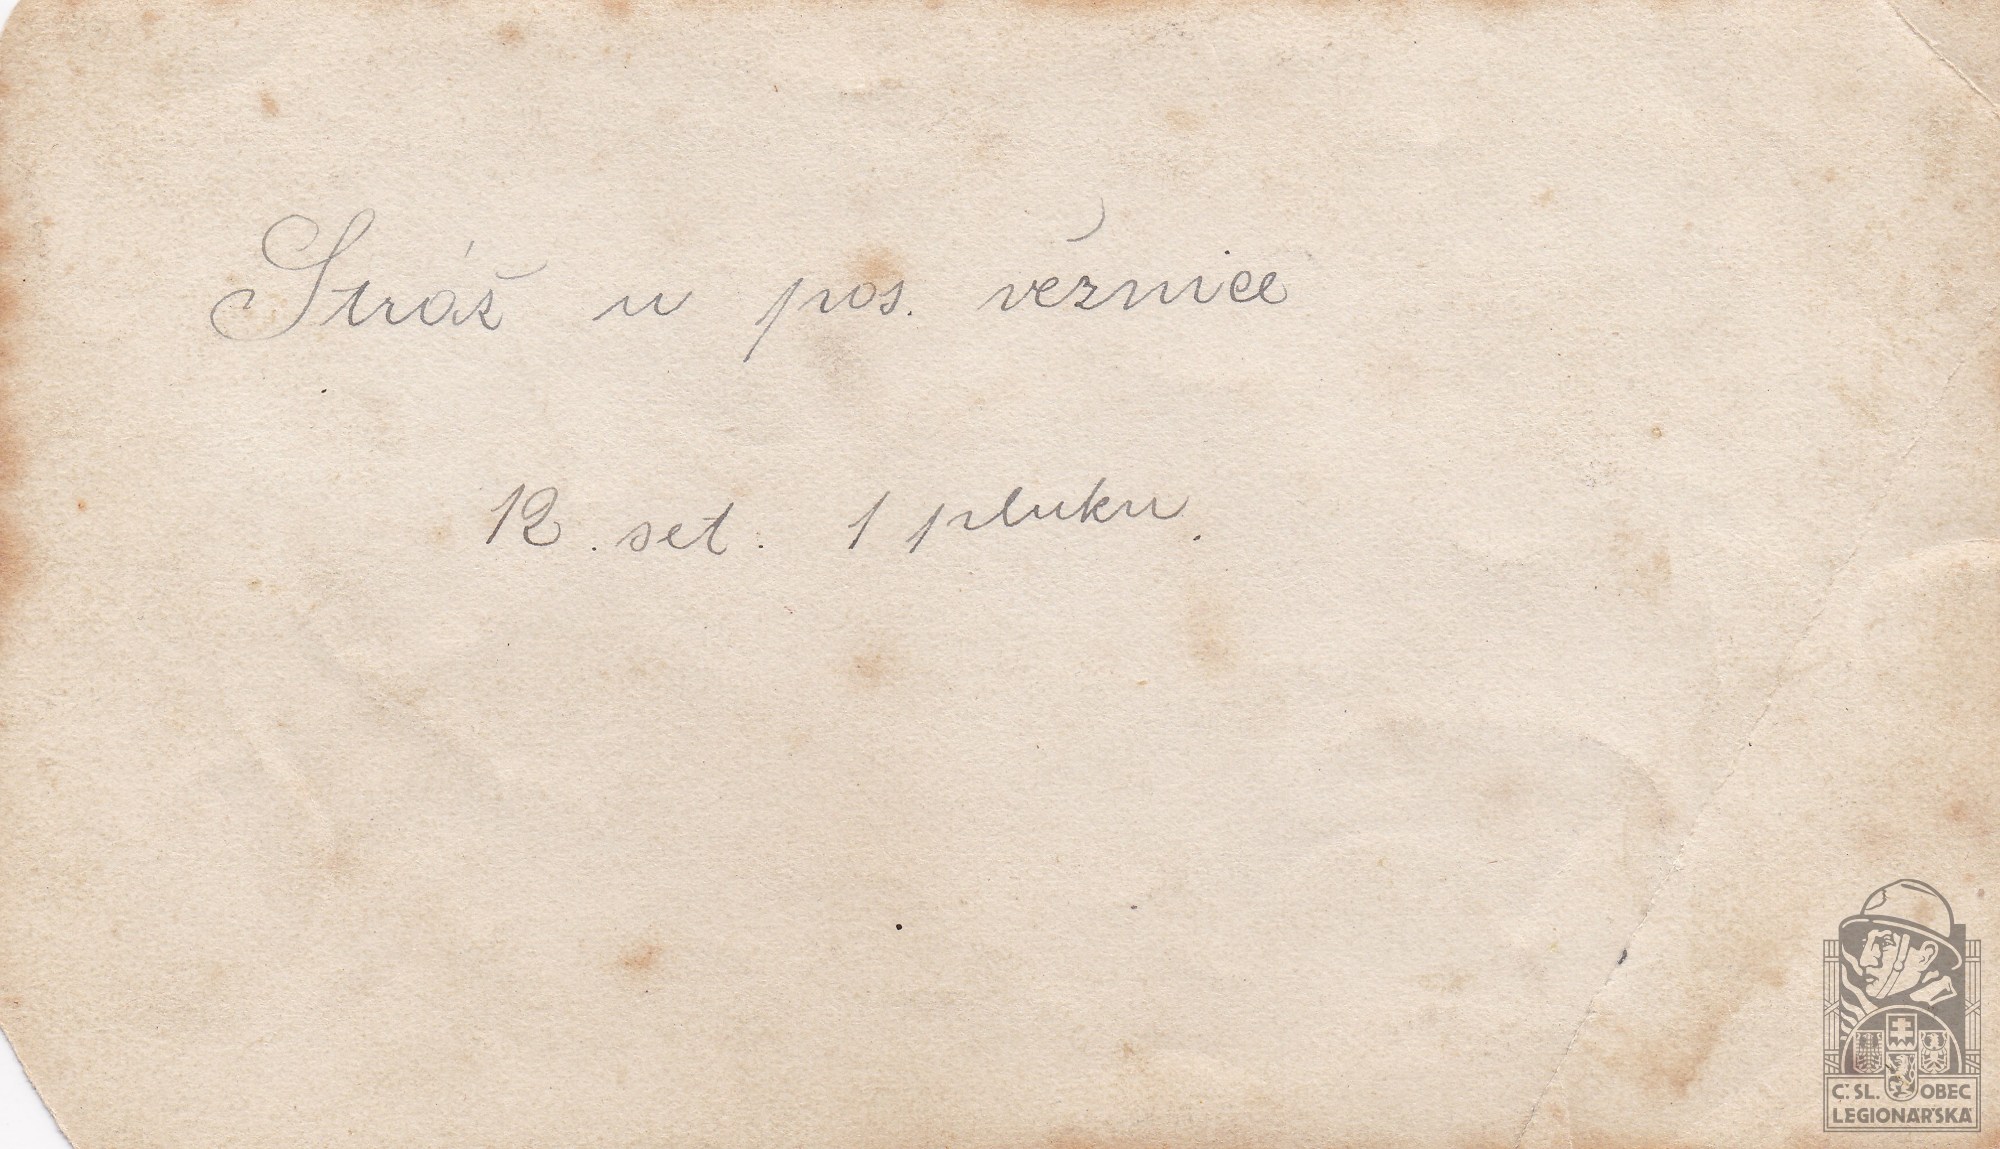 Stráž u pos. věznice
12. set. 1 pluku.
Č. SL. OBEC
LEGIONÁŘSKÁ